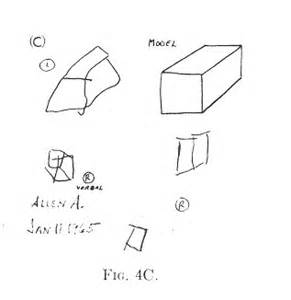 (C)
MODEL
L
R
VERBAL
ALLEN A.
R
JAN 11 1965
FIG. 4C.